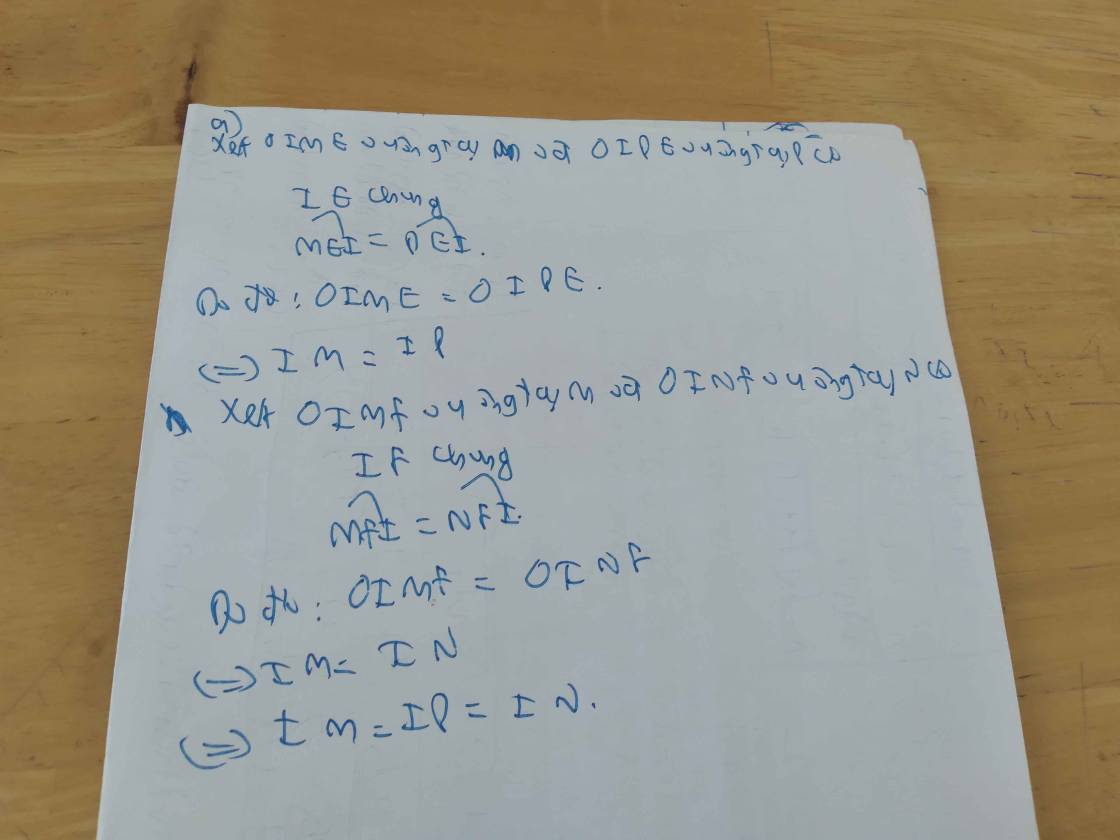 a)
Xét ΔIME vuông tại M và ΔIPE vuông tại P có
IE chung
MEI = PEI.
Do đó: ΔIME = ΔIPE.
(=) IM = IP
Xét ΔIMF vuông tại M và ΔINF vuông tại N có
IF chung
MFI = NFI.
Do đó: ΔIMF = ΔINF
(=) IM = IN
(=) IM = IP = IN.